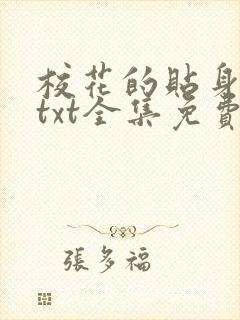 校花的貼身
txt全集免費
張多福